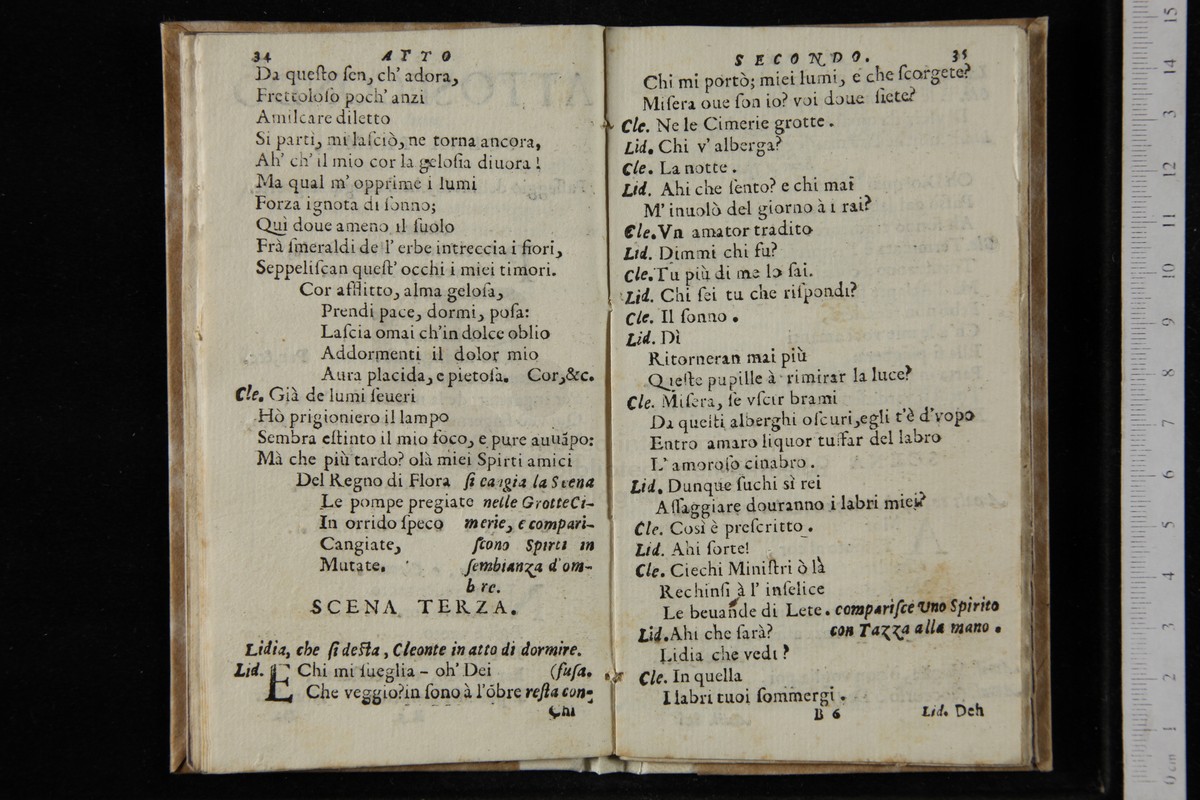 34 ATTO
Da questo sen, ch' adora,
Frettoloso poch' anzi
Amilcare diletto
Si parti, mi lasciò, ne torna ancora,
Ah' ch' il mio cor la gelosia diuora!
Ma qual m' opprime i lumi
Forza ignota di sonno;
Quì doue ameno il suolo
Frà smeraldi de l' erbe intreccia i fiori,
Seppeliscan quest' occhi i miei timori.
Cor afflitto, alma gelosa,
Prendi pace, dormi, posa:
Lascia omai ch'in dolce oblio
Addormenti il dolor mio
Aura placida, e pietosa. Cor,&c.
Cle. Già de lumi seueri
Hò prigioniero il lampo
Sembra estinto il mio foco, e pure auuāpo:
Mà che più tardo? olà miei Spirti amici
Del Regno di Flora si cangia la Scena
Le pompe pregiate nelle GrotteCi-
In orrido speco merie, e compari-
Cangiate, scono Spirti in
Mutate. sembianza d'om-
bre.
SCENA TERZA.
Lidia, che si desta, Cleonte in atto di dormire.
Lid. E Chi mi sueglia - oh' Dei (fusa.
Che veggio?in sono à l'ōbre resta con-
Chi
SECONDO. 35
Chi mi portò; miei lumi, e che scorgete?
Misera oue son io? voi doue siete?
Cle. Ne le Cimerie grotte.
Lid. Chi v' alberga?
Cle. La notte.
Lid. Ahi che sento? e chi mai
M' inuolò del giorno à i rai?
Cle. Vn amator tradito
Lid. Dimmi chi fu?
Cle. Tu più di me lo sai.
Lid. Chi sei tu che rispondi?
Cle. Il sonno.
Lid. Dì
Ritorneran mai più
Queste pupille à rimirar la luce?
Cle. Misera, se vscir brami
Da questi alberghi oscuri,egli t'è d'vopo
Entro amaro liquor tuffar del labro
L' amoroso cinabro.
Lid. Dunque fuchi sì rei
Assaggiare douranno i labri miei?
Cle. Così è prescritto.
Lid. Ahi sorte!
Cle. Ciechi Ministri ò là
Rechinsi à l' infelice
Le beuande di Lete. comparisce Vno Spirito
Lid. Ahi che sarà? con Tazza alla mano.
Lidia che vedi?
Cle. In quella
I labri tuoi sommergi.
B 6 Lid. Deh